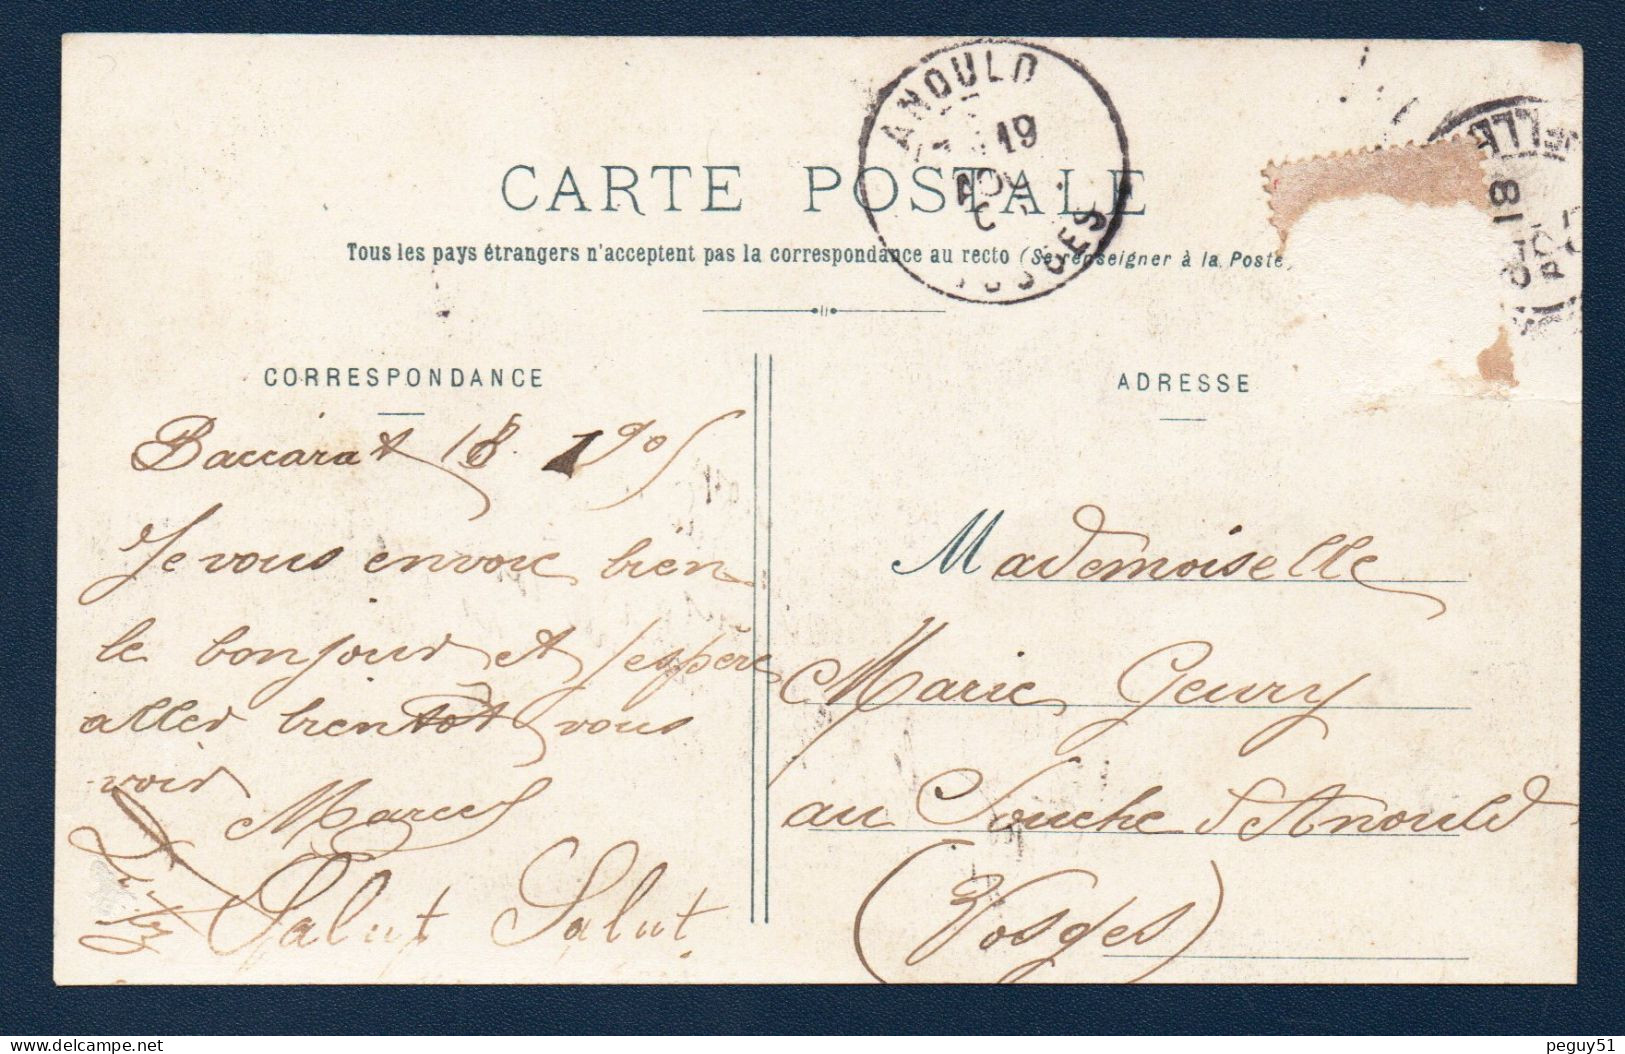 CARTE POSTALE
Tous les pays étrangers n'acceptent pas la correspondance au recto (Se renseigner à la Poste
ANOULD
19
VOSGES
ELLE
18
CORRESPONDANCE
ADRESSE
Baccarat 18. 1905
Je vous envoie bien
le bonjour et j'espère
aller bientôt vous
voir
Marcel
Salut Salut
Mademoiselle
Marie Geury
au Souche d'Anould
(Vosges)
peguy51